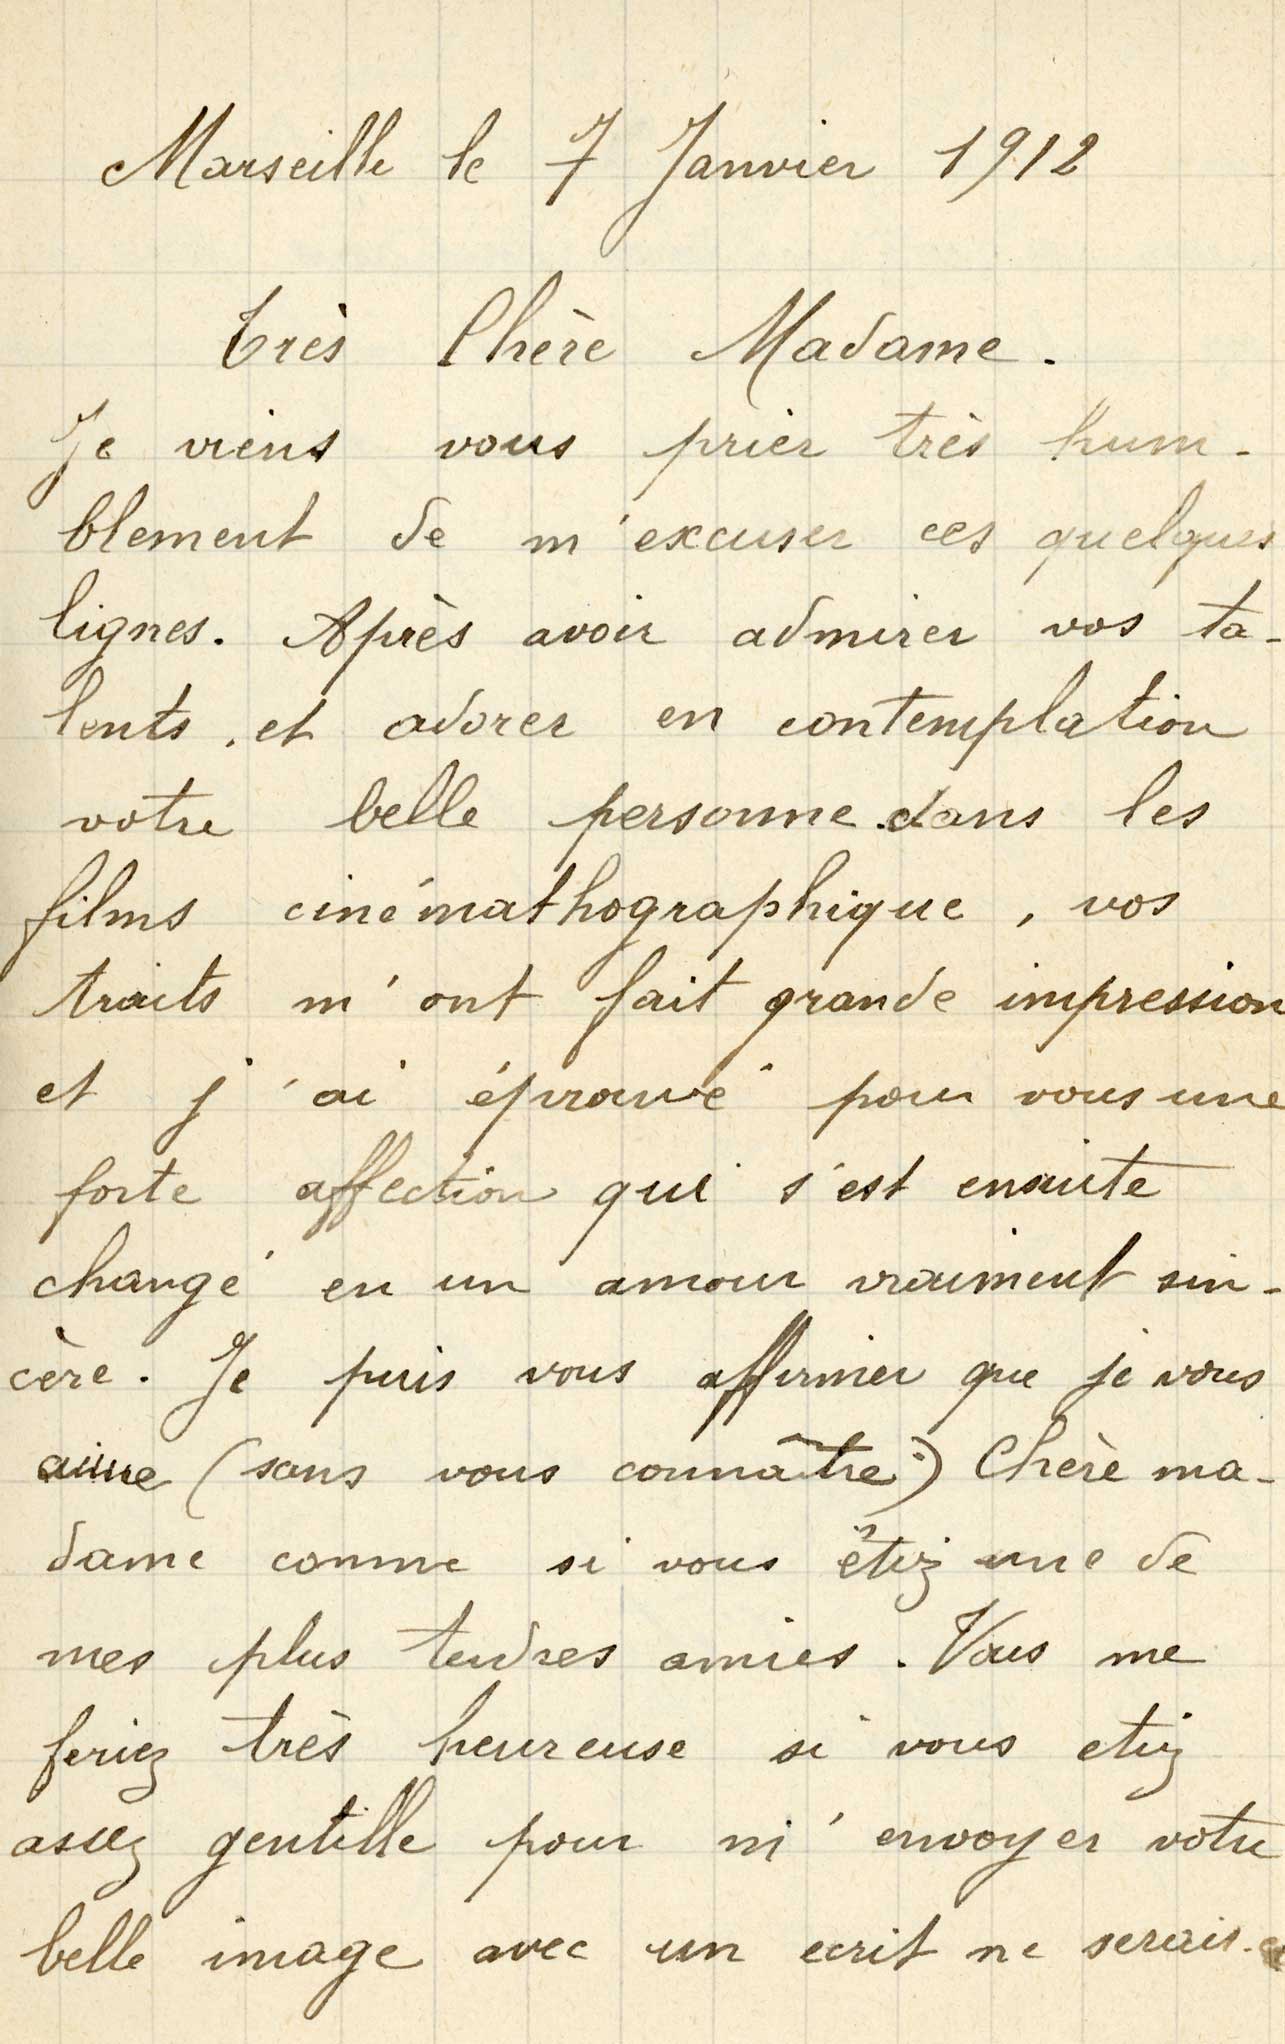 Marseille le 7 Janvier 1912
très Chère Madame.
Je viens vous prier très hum-
blement de m'excuser ces quelques
lignes. Après avoir admirer vos ta-
lents, et adorer en contemplation
votre belle personne dans les
films cinémathographique, vos
traits m'ont fait grande impression
et j'ai éprouvé pour vous une
forte affection qui s'est ensuite
changé en un amour vraiment sin-
cère. Je puis vous affirmer que je vous
aime (sans vous connaître) Chère ma-
dame comme si vous êtiez une de
mes plus tendres amies. Vous me
feriez très heureuse si vous etiez
assez gentille pour m'envoyer votre
belle image avec un ecrit ne serais-